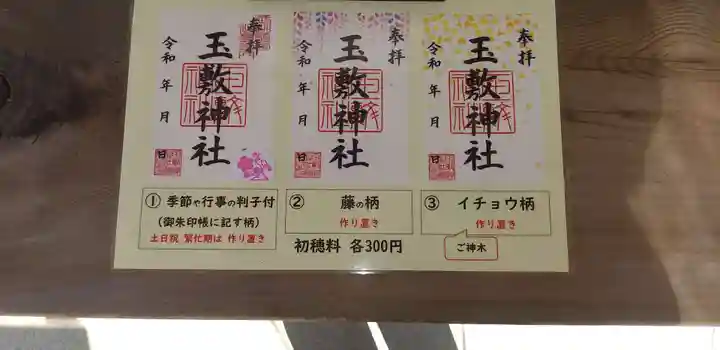 奉拝
玉敷神社
令和 年 月 日
奉拝
玉敷神社
令和 年 月 日
奉拝
玉敷神社
令和 年 月 日
① 季節や行事の判子付
(御朱印帳に記す柄)
土日祝 繁忙期は 作り置き
② 藤の柄
作り置き
③ イチョウ柄
作り置き
ご神木
初穂料 各300円